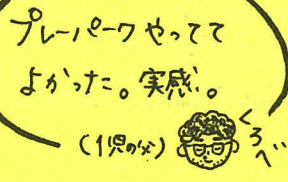 プレーパークやってて
よかった。実感。
（1児の父）
くろべぇ